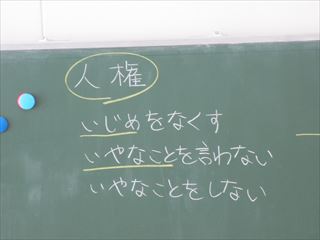 人権
いじめをなくす
いやなことを言わない
いやなことをしない